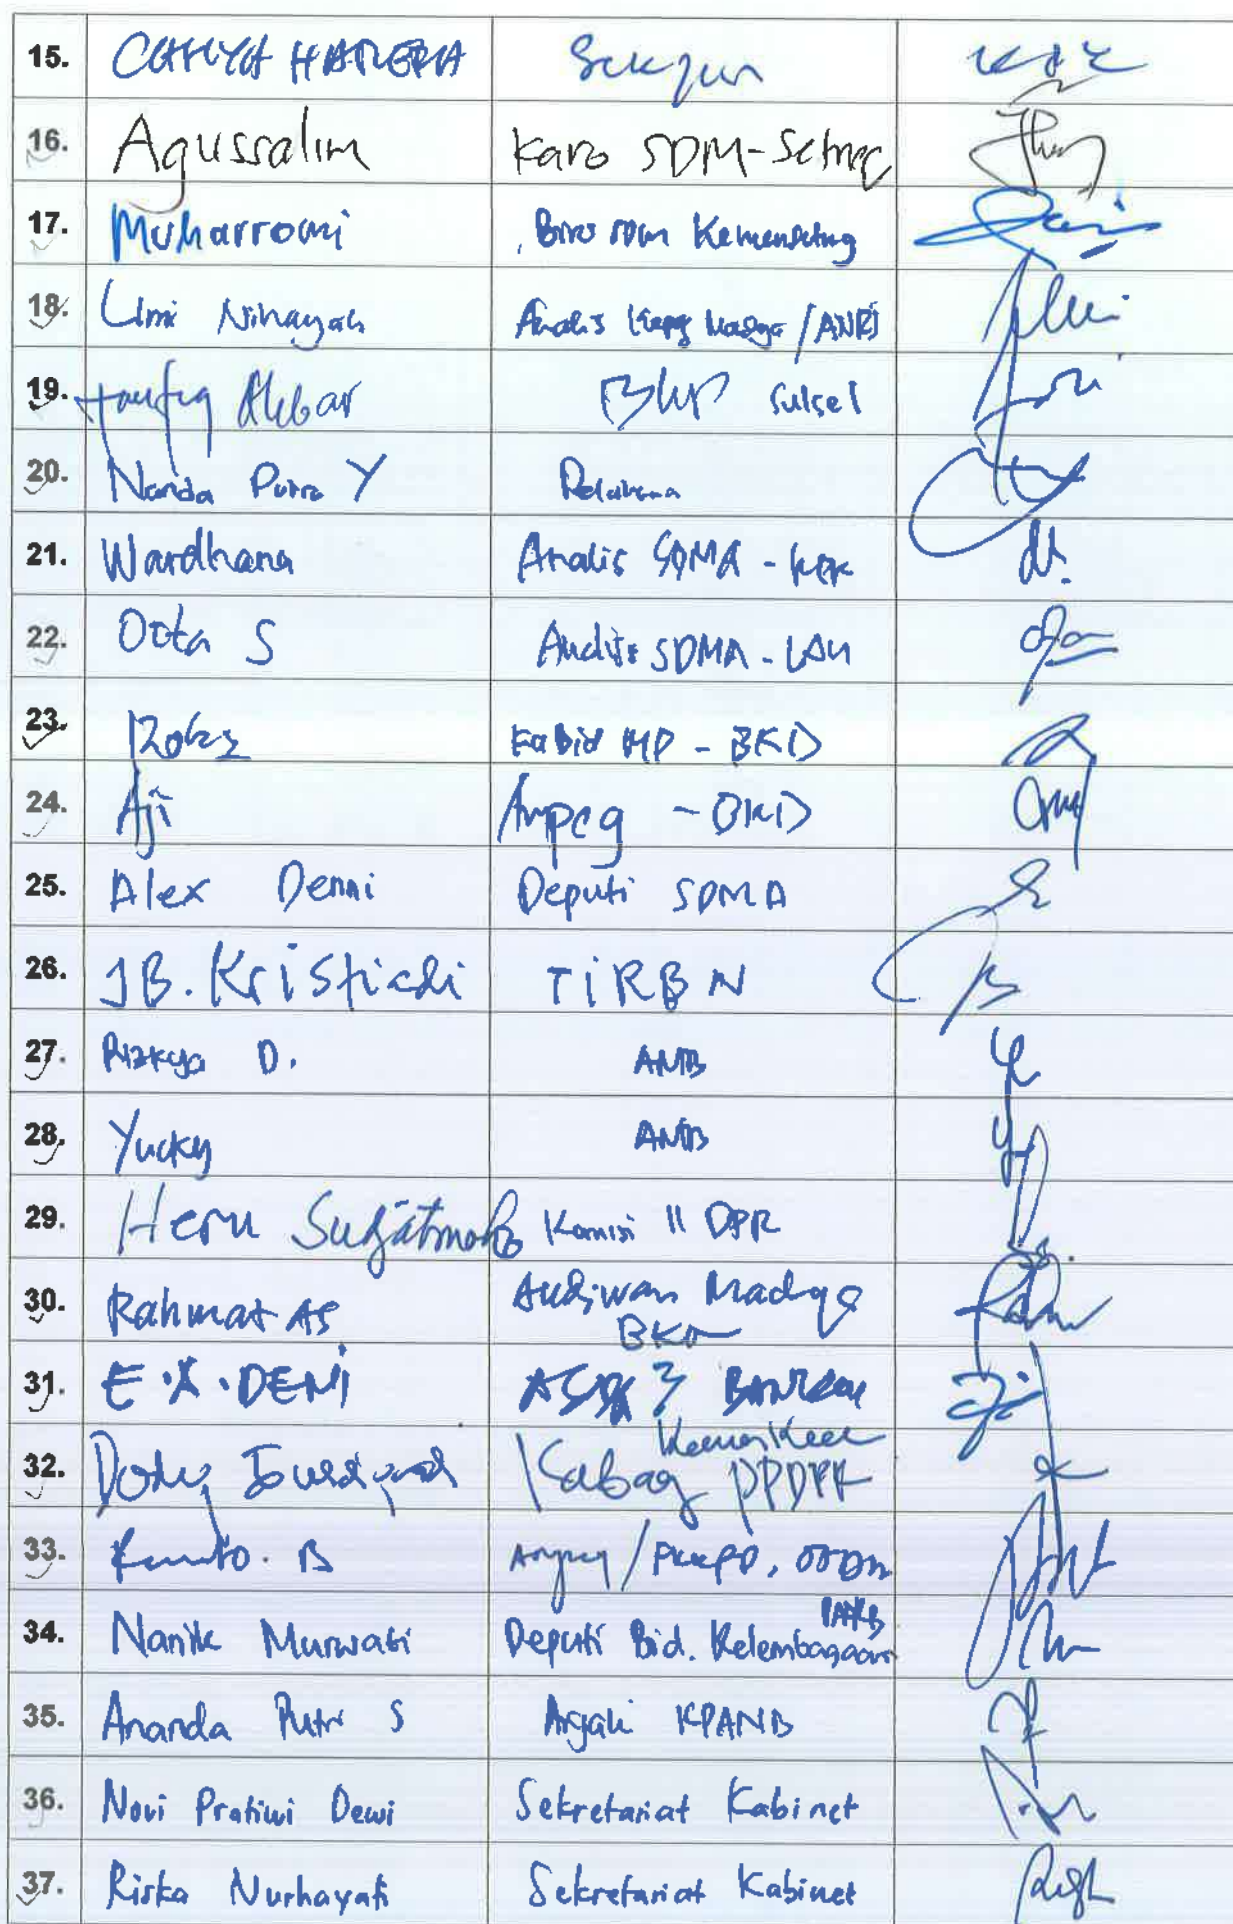 15. CAHYA HAREFA Sekjen
16. Agussalim Karo SDM-Setneg
17. Muharromi Biro SDM Kemensetneg
18. Umi Nihayah Analis Kepeg Madya/ANRI
19. Taufiq Akbar BKD Sulsel
20. Nanda Putra Y
21. Wardhana Analis SDMA - KPK
22. Octa S Analis SDMA - LAN
23. Kabid MP - BKD
24. Aji Anpeg - BKD
25. Alex Denni Deputi SDMA
26. JB. Kristiadi TiRBN
27. Rizkya D. ANB
28. Yucky ANB
29. Heru Sudjatmoko Komisi II DPR
30. Rahmat AS Audiwan Madya
BKN
31. E.X.DENI
32. Kabag
33. B
PANRB
34. Nanik Murwati Deputi Bid. Kelembagaan
35. Ananda Putri S KPANB
36. Novi Pratiwi Dewi Sekretariat Kabinet
37. Riska Nurhayati Sekretariat Kabinet